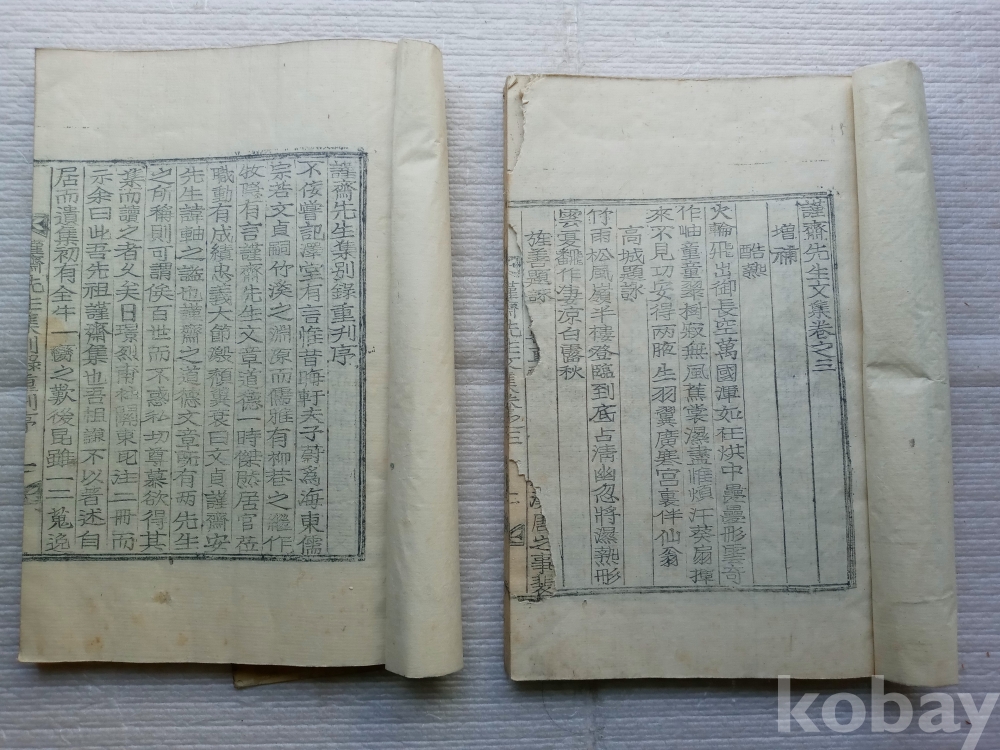 謹齋先生集別錄重刊序
不佞嘗記澤堂有言惟昔晦軒夫子蔚爲海東儒
宗若文貞嗣竹溪之淵源而儒雅有柳巷之繼作
牧隱有言謹齋先生文章道德一時傑然居官莅
職動有成績忠義大節 曰文貞謹齋安
先生諱軸之諡也謹齋之道德文章旣有兩先生
之所稱則可謂俟百世而不惑私切尊慕欲得其
集而讀之者久矣日璟烈甫袖關東瓦注二冊而
示余曰此吾先祖謹齋集也吾祖謙不以著述自
居而遺集初有全牛一臠之歎後昆雖一二蒐逸
謹齋先生集別錄重刊序 一
謹齋先生文集卷之三
增補
酷熱
火輪飛出御長空萬國渾如在烘中疊疊形雲奇
作岫童童翠樹寂無風蕉裳濕盡惟煩汗葵扇揮
來不見功安得兩腋生羽翼廣寒宮裏伴仙翁
高城題詠
竹雨松風嶺半樓登臨到底占淸幽忽將濕熱形
雲宴翻作凄凉白露秋
旌善題詠
謹齋先生文集卷之三
之事裴
kobay